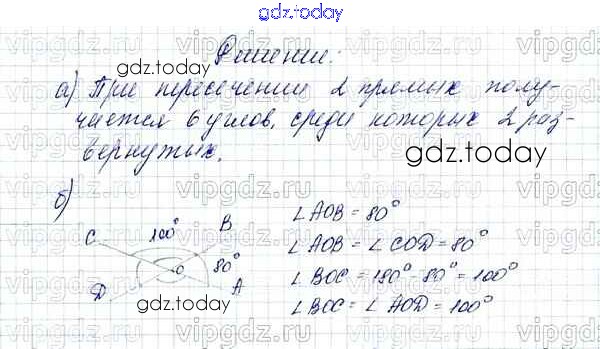 gdz.today
Решение:
gdz.today
а) При пересечении 2 прямых полу-
чается 6 углов, среди которых 2 раз-
вернутых.
gdz.today
б)
C 100° B
O 80°
D A
gdz.today
∠AOB = 80°
∠AOB = ∠COD = 80°
∠BOC = 180° - 80° = 100°
∠BOC = ∠AOD = 100°
vipgdz.ru